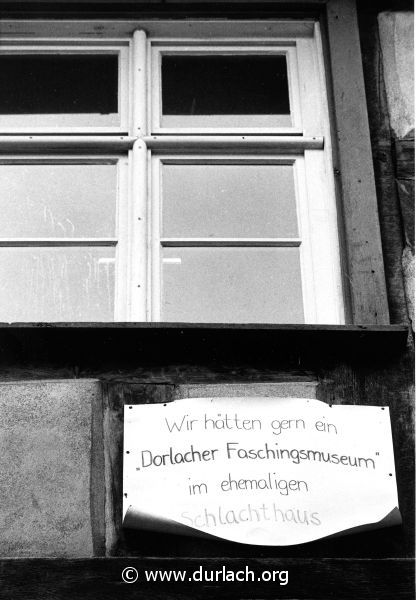 Wir hätten gern ein
„Dorlacher Faschingsmuseum"
im ehemaligen
Schlachthaus
© www.durlach.org